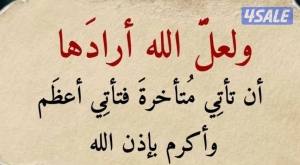 4SALE
ولعلّ الله أرادَها
أن تأتِي مُتأخرةَ فتأتِي أعظَم
وأكرم بإذن الله